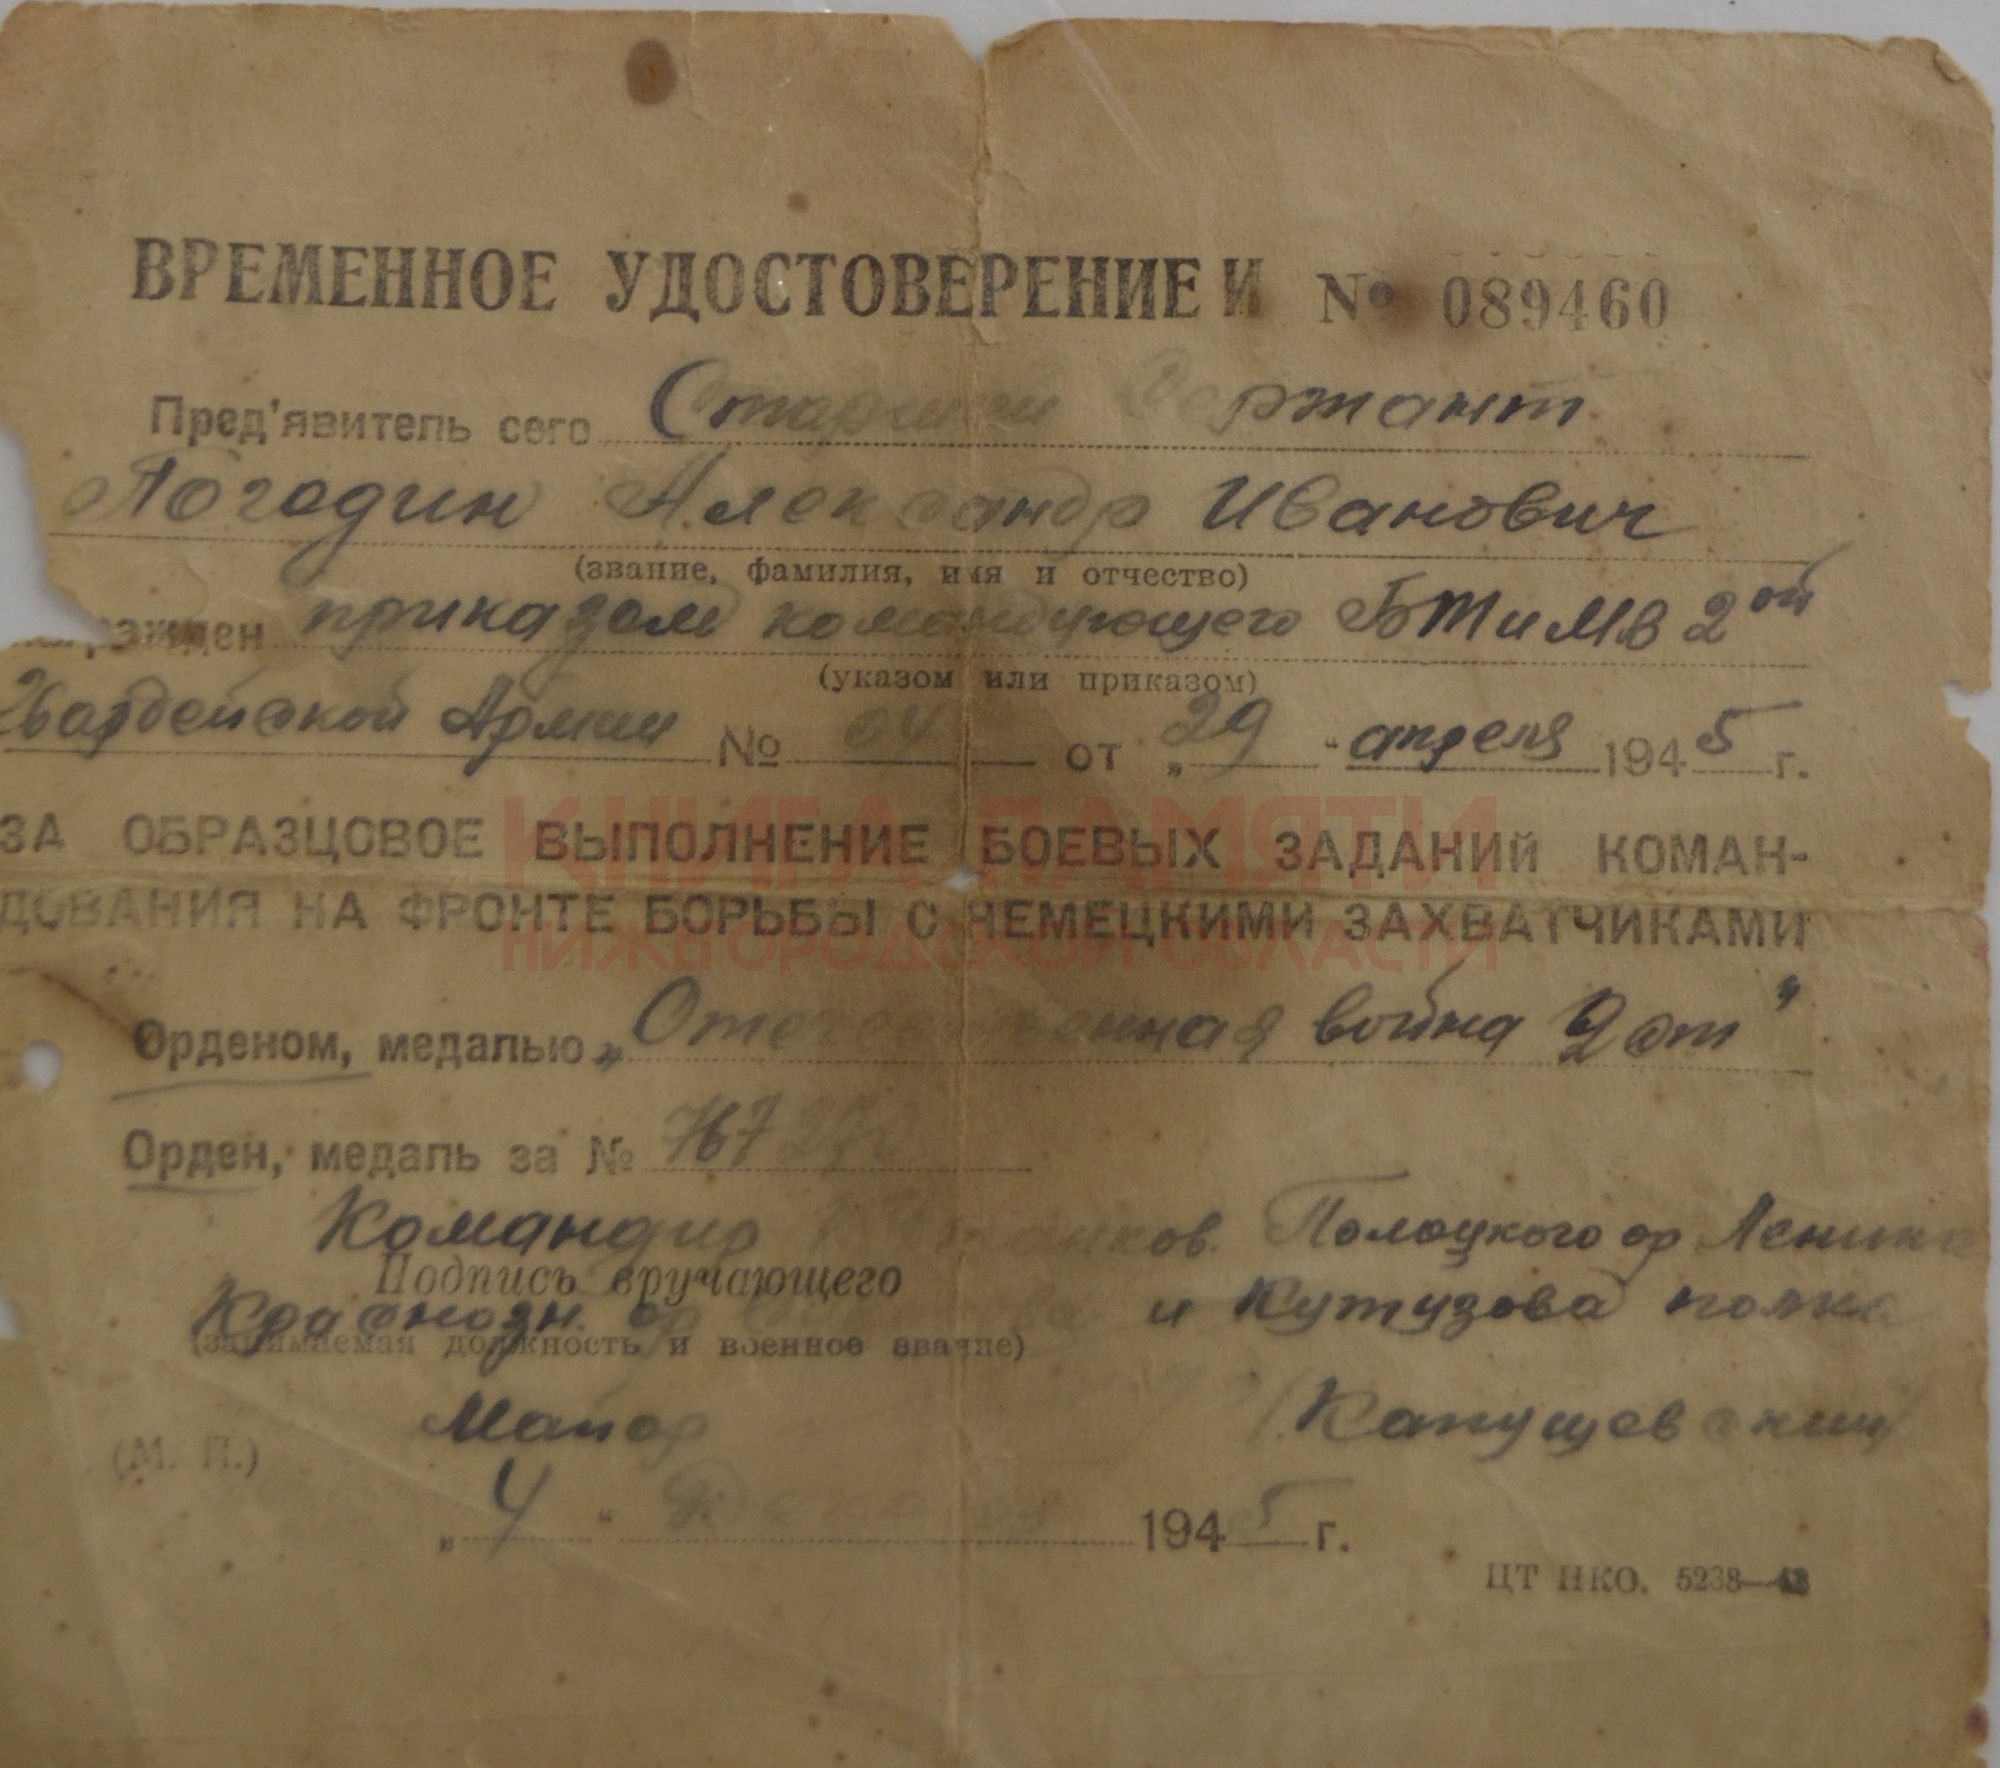 ВРЕМЕННОЕ УДОСТОВЕРЕНИЕ И № 089460
Пред'явитель сего Старший Сержант
Погодин Александр Иванович
(звание, фамилия, имя и отчество)
награжден приказом командующего БТиМВ 2ой
(указом или приказом)
Гвардейской Армии № 04 от „29“ апреля 1945 г.
КНИГА ПАМЯТИ
ЗА ОБРАЗЦОВОЕ ВЫПОЛНЕНИЕ БОЕВЫХ ЗАДАНИЙ КОМАН-
ДОВАНИЯ НА ФРОНТЕ БОРЬБЫ С НЕМЕЦКИМИ ЗАХВАТЧИКАМИ
НИЖЕГОРОДСКОЙ ОБЛАСТИ
Орденом, медалью „Отечественная война 2 ст"
Орден, медаль за №
Командир Полоцкого ор Ленина
Подпись вручающего
Краснозн. ор и Кутузова полка
(занимаемая должность и военное звание)
Майор Капущевский
(М. П.)
„4“ 1945 г.
ЦТ НКО. 5238—43